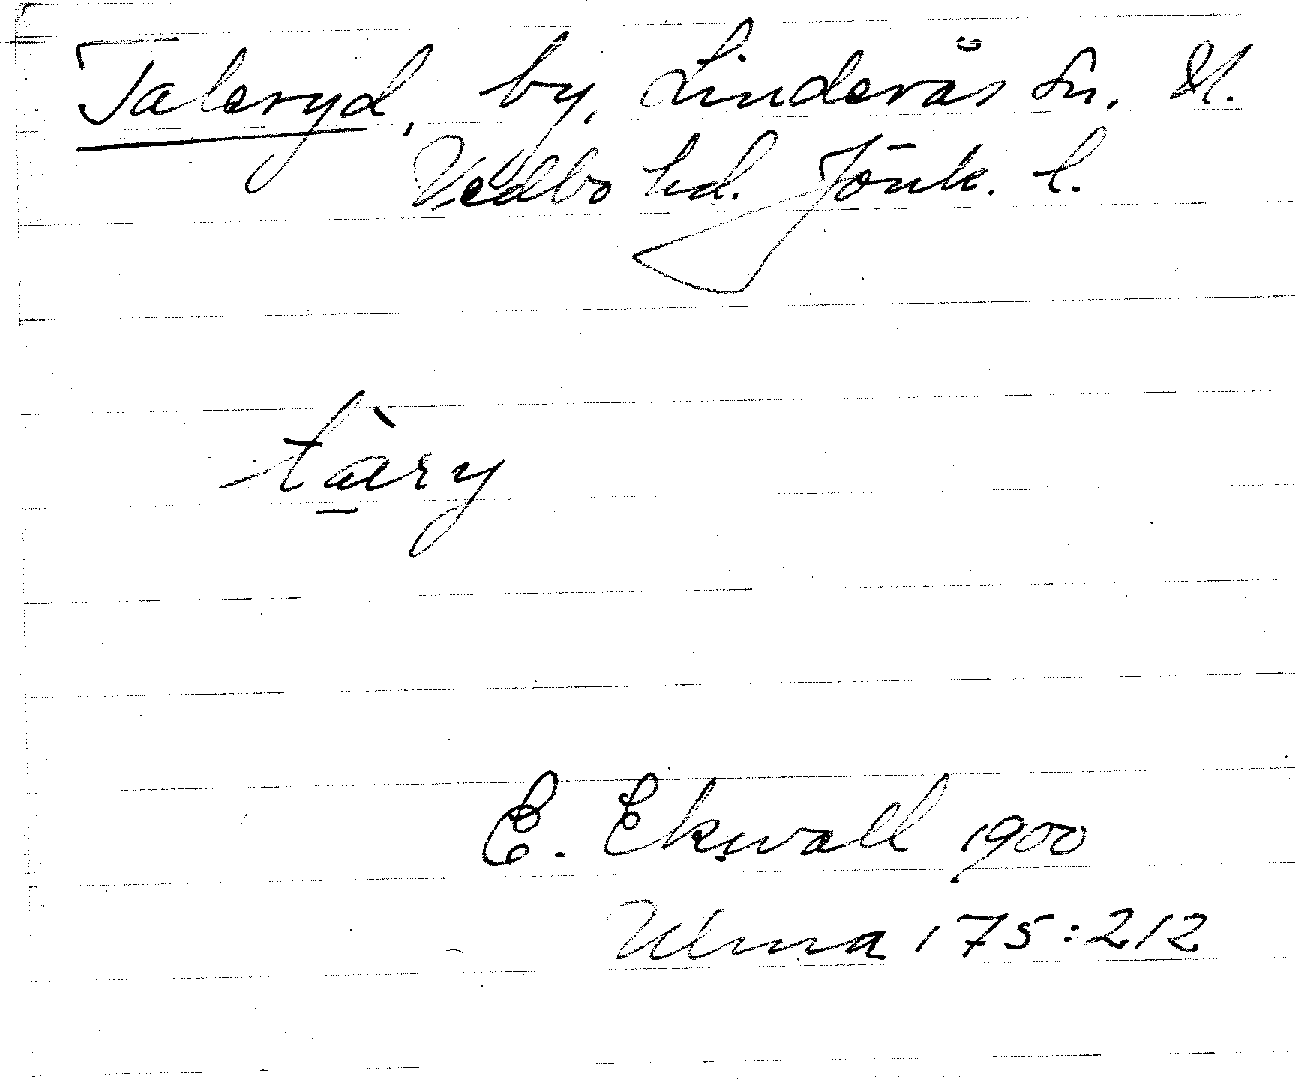 Taleryd, by, Linderås sn. N.
Vedbo hd. Jönk. l.
tàery
E. Ekwall 1900
Ulma 175:212